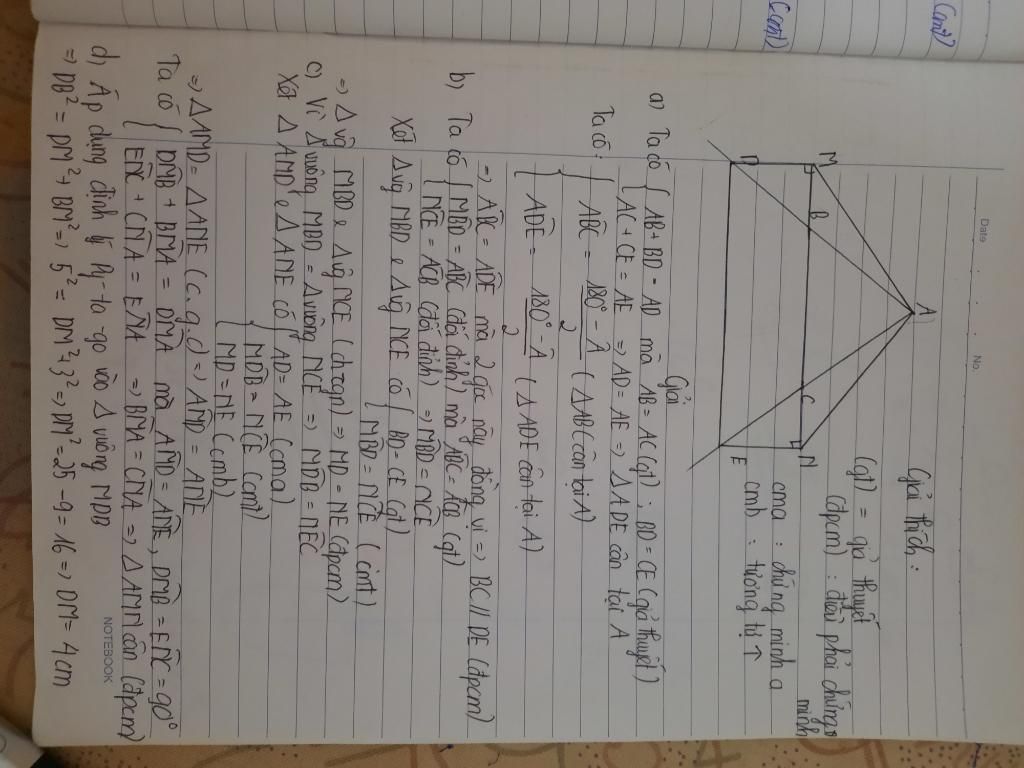 (cmt)
(cmt)
Date
No.
Giải thích:
(gt) = giả thuyết
(đpcm): điều phải chứng minh
cma : chứng minh a
cmb : tương tự ↑
A
M
B
C
N
D
E
Giải
a) Ta có { AB + BD = AD mà AB = AC (gt) ; BD = CE (giả thuyết)
AC + CE = AE => AD = AE => Δ ADE cân tại A
Ta có: { ABC = 180° - A / 2 ( Δ ABC cân tại A)
ADE = 180° - A / 2 ( Δ ADE cân tại A)
=> ABC = ADE mà 2 góc này đồng vị => BC // DE (đpcm)
b) Ta có { MBD = ABC (đối đỉnh) mà ABC = ACB (gt)
NCE = ACB (đối đỉnh) => MBD = NCE
Xét Δvg MBD và Δvg NCE có { BD = CE (gt)
MBD = NCE (cmt)
=> Δvg MBD = Δvg NCE (ch-gn) => MD = NE (đpcm)
c) Vì Δ vuông MBD = Δ vuông NCE => MDB = NEC
Xét Δ AMD và Δ ANE có { AD = AE (cma)
MDB = NCE (cmt)
MD = NE (cmb)
=> Δ AMD = Δ ANE (c.g.c) => AMD = ANE
Ta có { DMB + BMA = DMA mà AMD = ANE, DMB = ENC = 90°
ENC + CNA = ENA => BMA = CNA => Δ AMN cân (đpcm)
d) Áp dụng định lý Py-ta-go vào Δ vuông MDB
=> DB² = DM² + BM² => 5² = DM² + 3² => DM² = 25 - 9 = 16 => DM = 4cm
NOTEBOOK